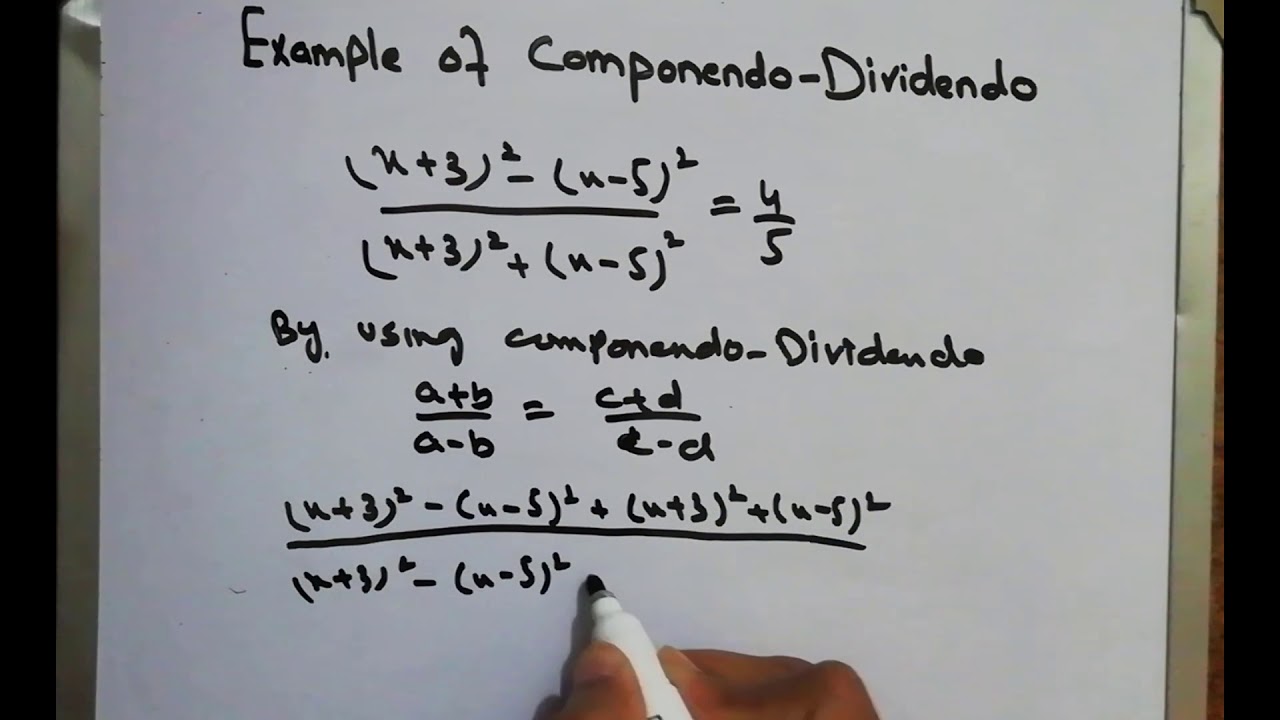 Example of Componendo-Dividendo
(x+3)² - (x-5)² / (x+3)² + (x-5)² = 4/5
By using componendo-Dividendo
a+b / a-b = c+d / c-d
(x+3)² - (x-5)² + (x+3)² + (x-5)²
(x+3)² - (x-5)²